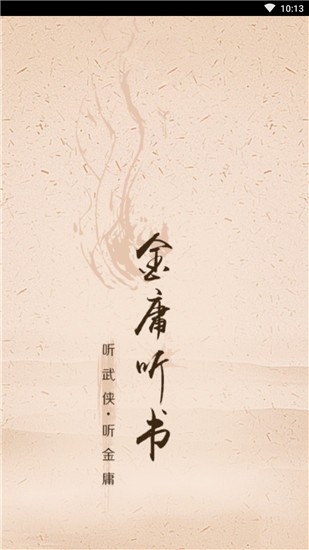 10:13
金庸听书
听武侠·听金庸